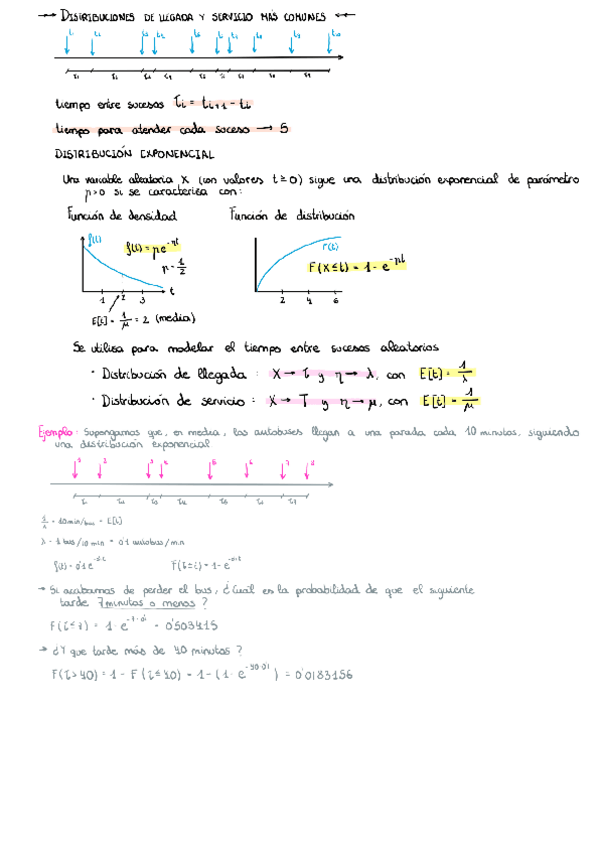 DISTRIBUCIONES DE LLEGADA Y SERVICIO MÁS COMUNES
tiempo entre sucesos τi = ti+1 - ti
tiempo para atender cada suceso → S
DISTRIBUCIÓN EXPONENCIAL
Una variable aleatoria X (con valores t≥0) sigue una distribución exponencial de parámetro
η>0 si se caracteriza con:
Función de densidad Función de distribución
f(t) f(t) = ηe^-ηt F(t)
η = 1/2 F(X≤t) = 1 - e^-ηt
1 2 3 t 2 4 6
E[t] = 1/μ = 2 (media)
Se utiliza para modelar el tiempo entre sucesos aleatorios
· Distribución de llegada : X → τ y η → λ, con E[t] = 1/λ
· Distribución de servicio : X → T y η → μ, con E[t] = 1/μ
Ejemplo: Supongamos que, en media, los autobuses llegan a una parada cada 10 minutos, siguiendo
una distribución exponencial
1/λ = 10min/bus = E[t]
λ = 1 bus/10 min = 0'1 autobus/min
→ Si acabamos de perder el bus, ¿Cuál es la probabilidad de que el siguiente
tarde 7 minutos o menos?
F(τ≤7) = 1 - e^-7·0'1 = 0'503415
→ ¿Y que tarde más de 40 minutos?
F(τ>40) = 1 - F(τ≤40) = 1 - (1 - e^-40·0'1) = 0'0183156